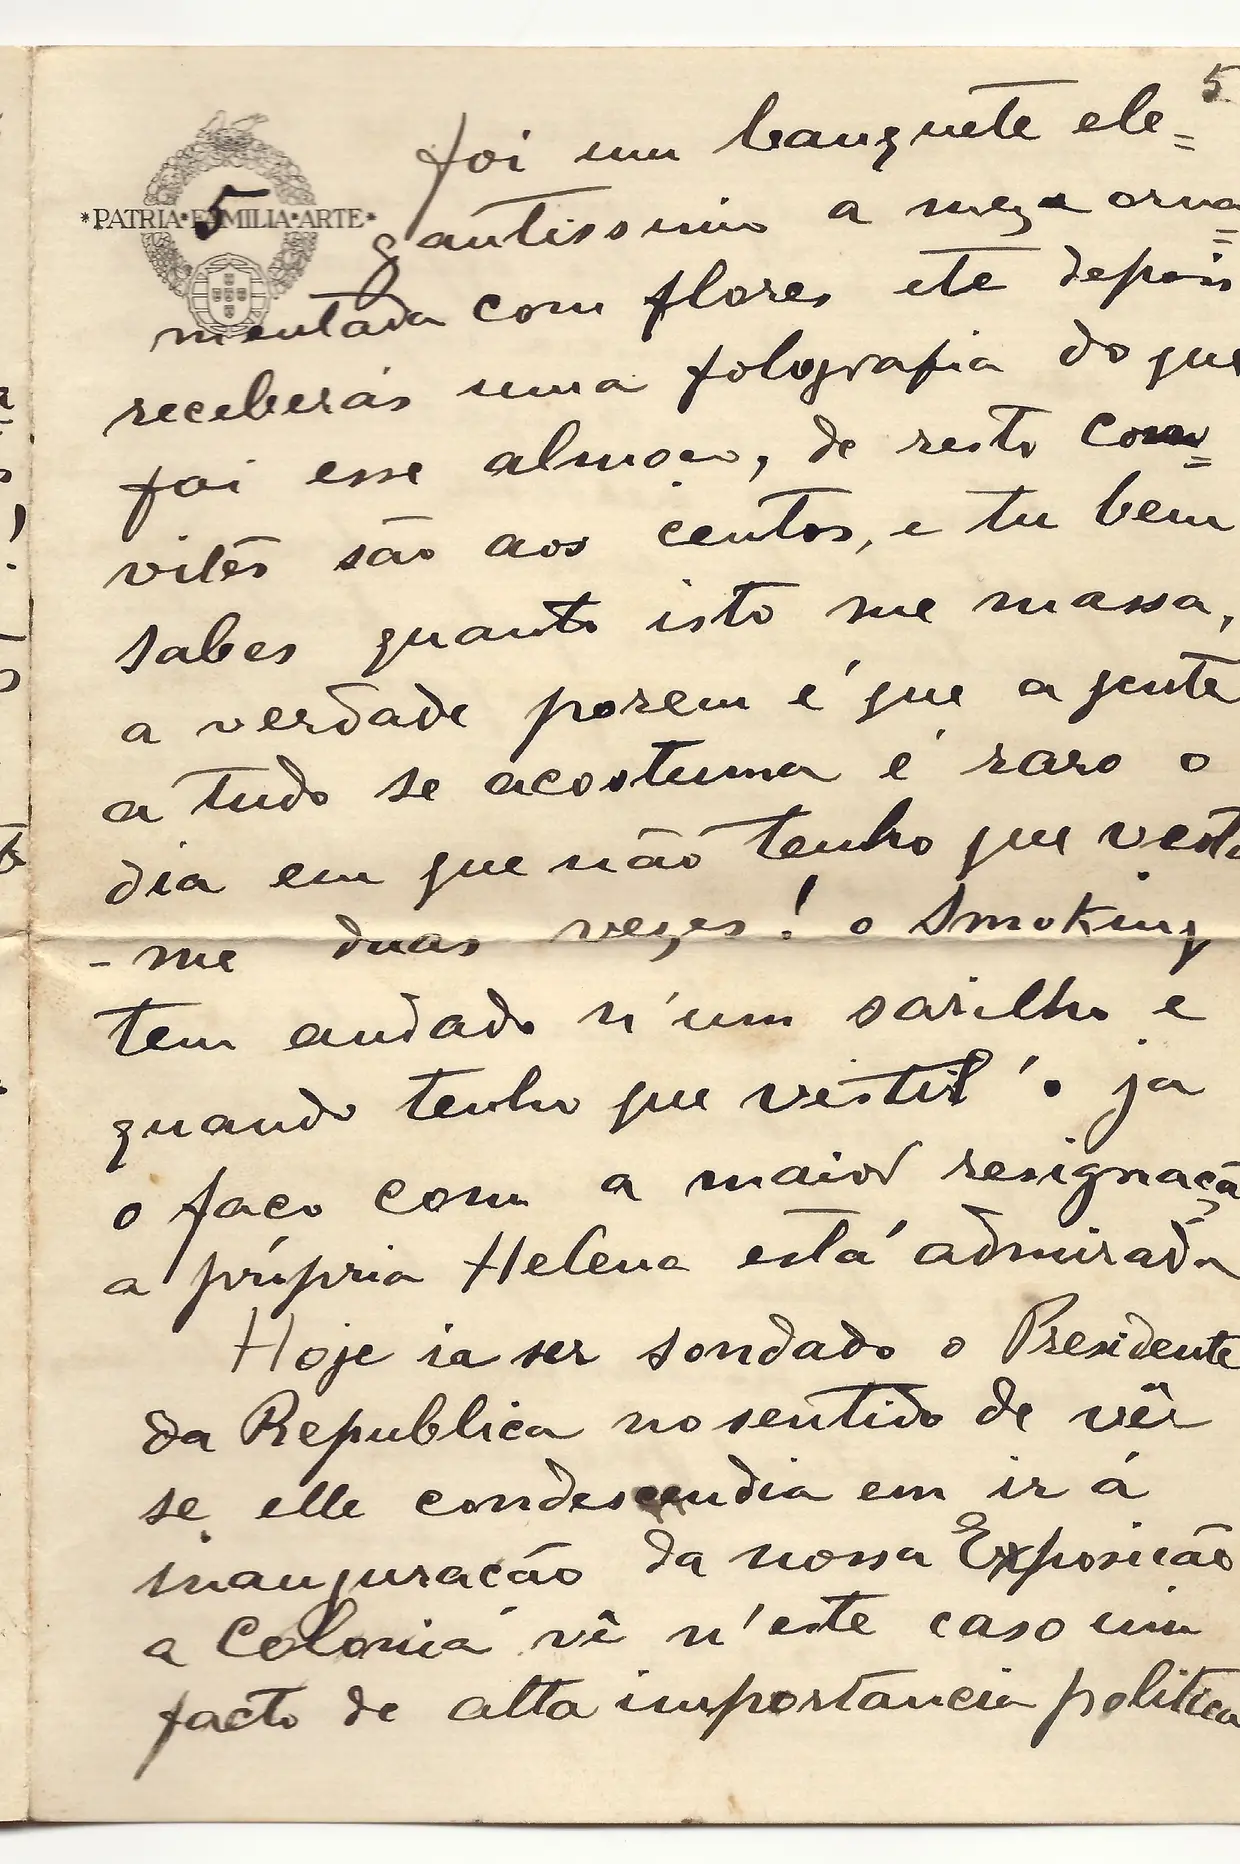 5
*PATRIA*FAMILIA*ARTE*
5
foi um banquete ele=
gantissimo a meza orna=
mentada com flores etc depois
receberás uma fotografia do que
foi esse almoço, de resto con=
vites são aos centos, e tu bem
sabes quanto isto me massa,
a verdade porem é que a gente
a tudo se acostuma é raro o
dia em que não tenho que vesti
-me duas vezes! o Smoking
tem andado n'um sarilho e
quando tenho que vestil'o já
o faço com a maior resignaçã
a própria Helena está admirada
Hoje ia ser sondado o Presidente
da Republica no sentido de vêr
se elle condescendia em ir á
inauguração da nossa Exposição
a Colonia vê n'este caso um
facto de alta importancia politica